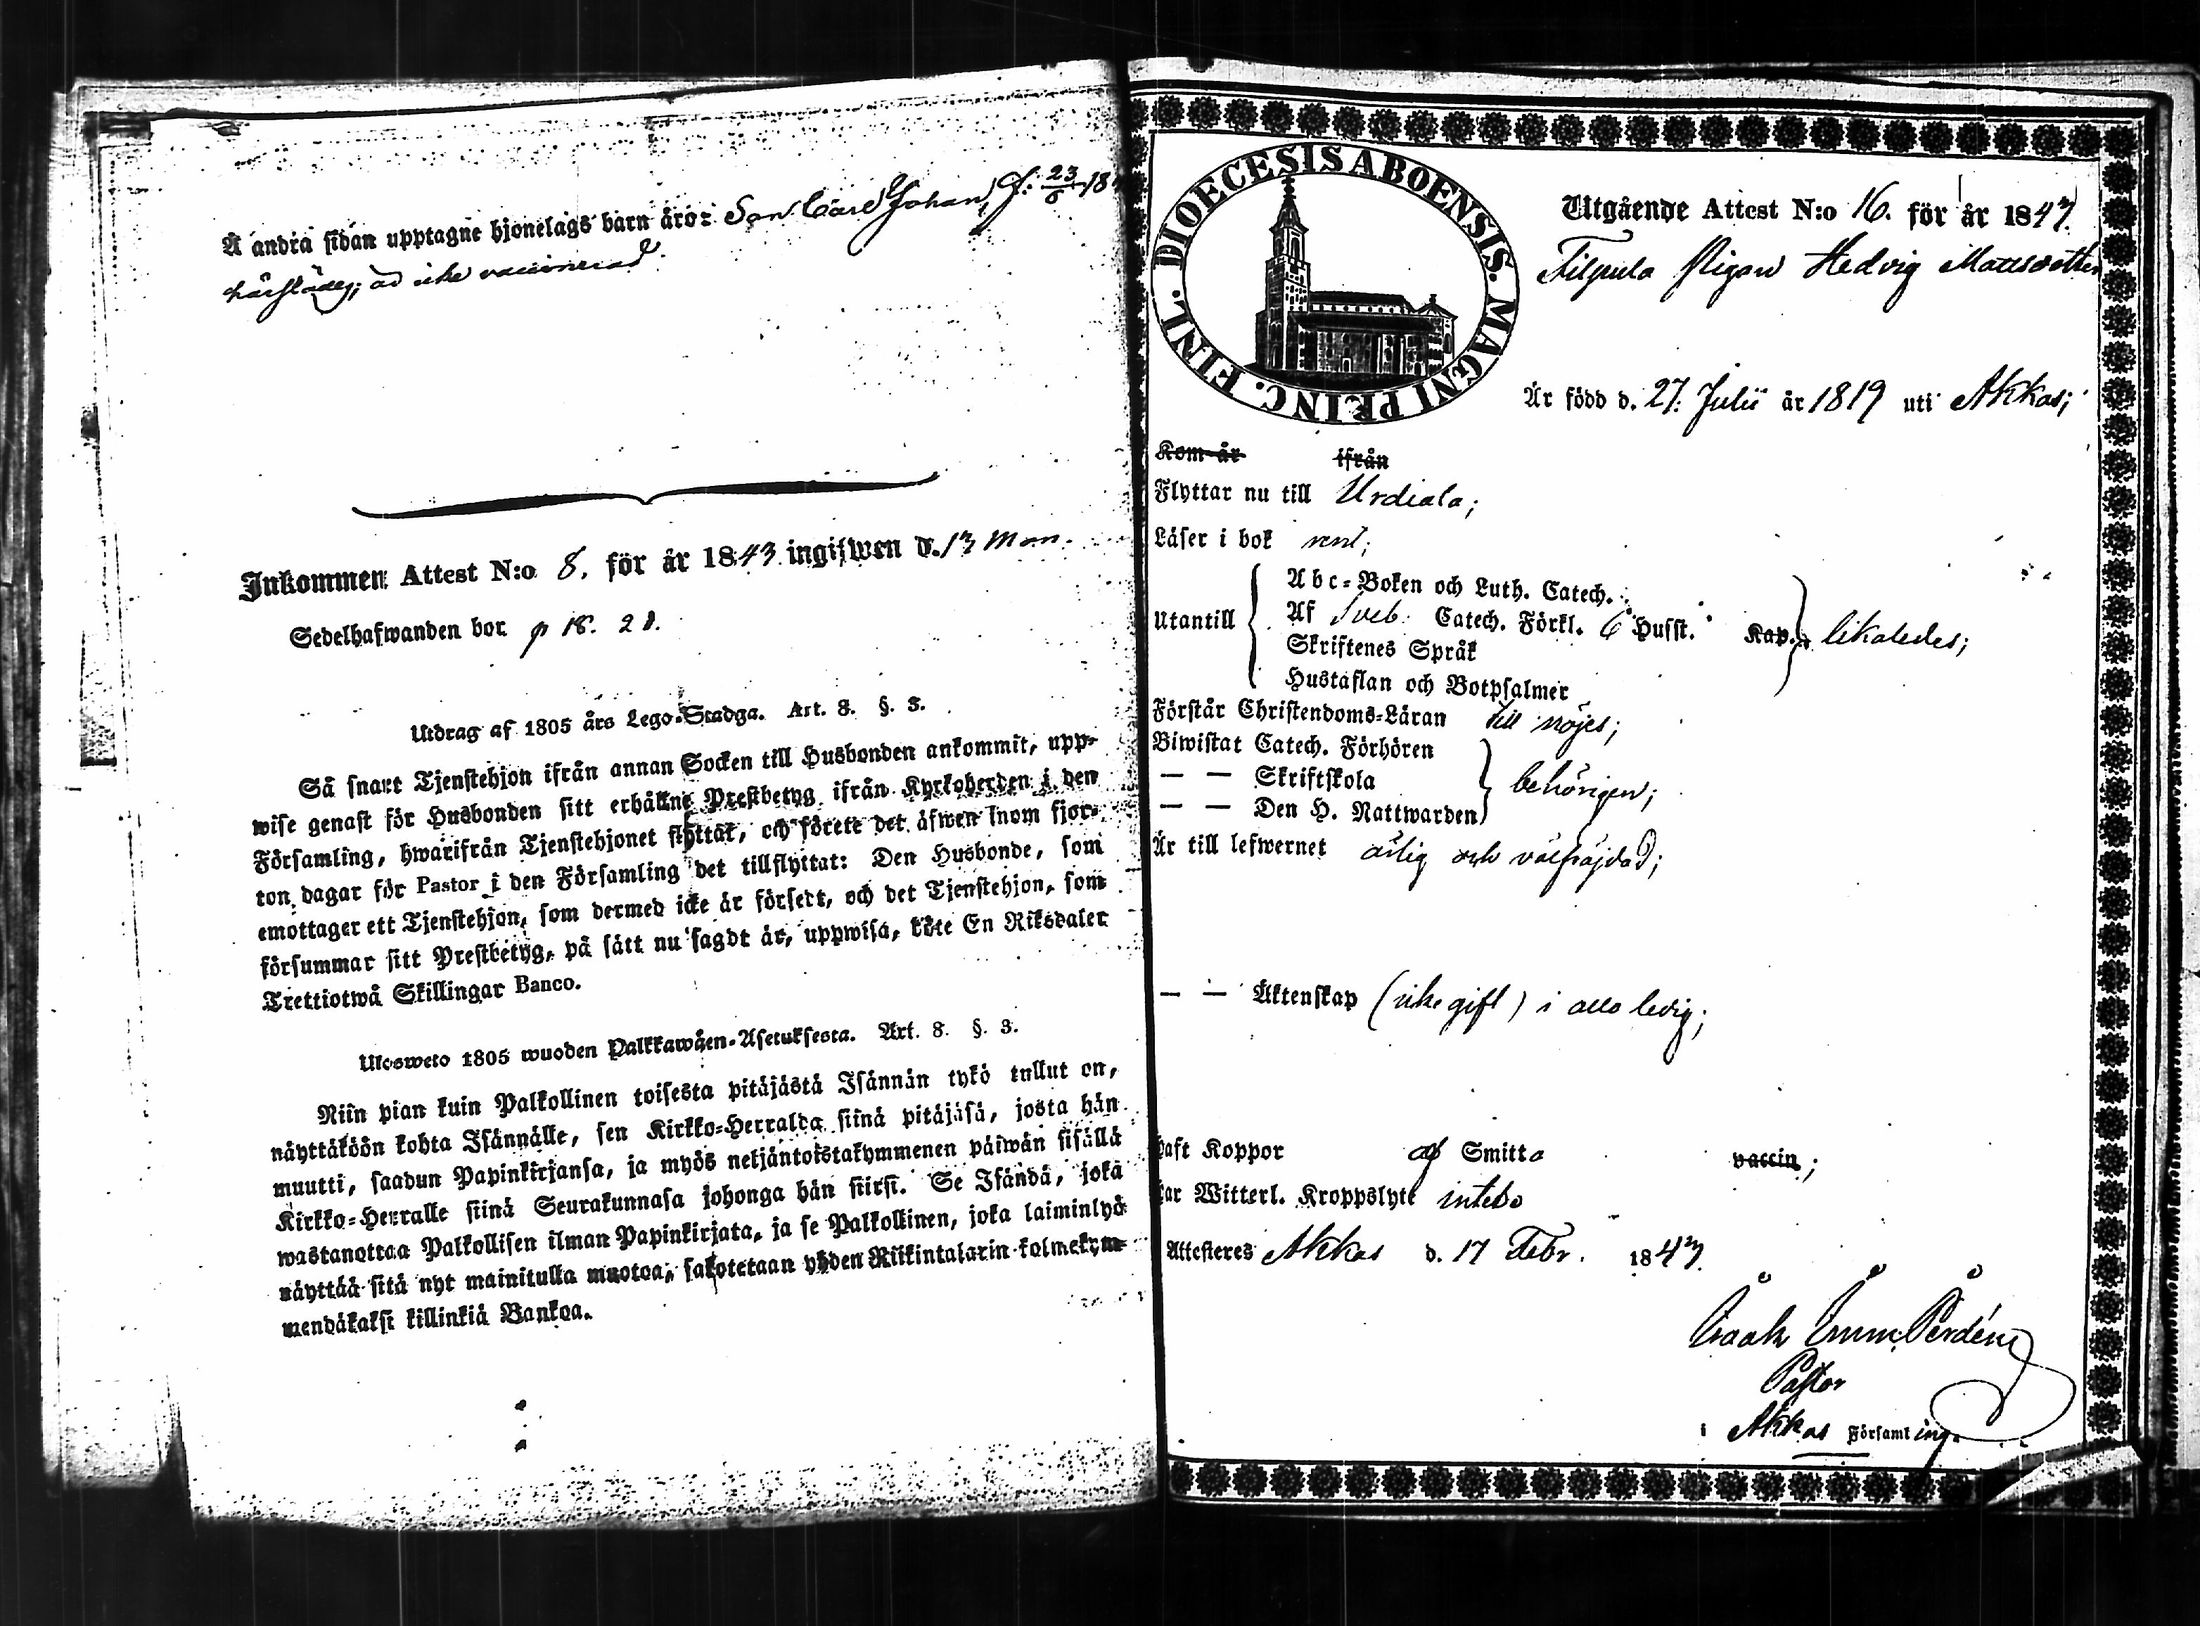 Å andra sidan upptagne hjonelags barn äro: Son Carl Johan, f. 23/6 18
härstädes; äd icke vaccinerad.
Inkommen Attest N:o 8. för år 1843 ingifwen d. 13
Sedelhafwanden bor p 18. 21.
Utdrag af 1805 års Lego-Stadga. Art. 8. §. 3.
Så snart Tjenstehjon ifrån annan Socken till Husbonden ankommit, upp-
wise genast för Husbonden sitt erhållne Prestbetyg ifrån Kyrkoherden i den
Församling, hwarifrån Tjenstehjonet flyttat, och förete det äfwen inom fjor-
ton dagar för Pastor i den Församling det tillflyttat: Den Husbonde, som
emottager ett Tjenstehjon, som dermed icke är försedt, och det Tjenstehjon, som
försummar sitt Prestbetyg, på sätt nu sagdt är, uppwisa, böte En Riksdaler
Trettiotwå Skillingar Banco.
Ulosweto 1805 wuoden Palkkawäen-Asetuksesta. Art. 8. §. 3.
Niin pian kuin Palkollinen toisesta pitäjästä Isännän tykö tullut on,
näyttäköön kohta Isännälle, sen Kirkko-Herralda siinä pitäjäsä, josta hän
muutti, saadun Papinkirjansa, ja myös neljäntoistakymmenen päiwän sisällä
Kirkko-Herralle siinä Seurakunnasa johonga hän siirsi. Se Isändä, joka
wastanottaa Palkollisen ilman Papinkirjata, ja se Palkollinen, joka laiminlyö
näyttää sitä nyt mainitulla muotoa, sakotetaan yhden Riikintalarin kolmekym-
mendäkaksi killinkiä Bankoa.
DIOECESIS ABOENSIS. MAGNI PRINC. FINL.
Utgående Attest N:o 16. för år 1843.
Filpula Pigan Hedvig Mattsdotter
Är född d. 27. Julii år 1819 uti Akkas;
Kom år ifrån
Flyttar nu till Urdiala;
Läser i bok rent;
Abc-Boken och Luth. Catech.
Utantill Af Sveb. Catech. Förkl. 6 Husst. Kap. likaledes;
Skriftenes Språk
Hustaflan och Botpsalmer
Förstår Christendoms-Läran till nöjes;
Biwistat Catech. Förhören
— — Skriftskola behörigen;
— — Den H. Nattwarden
Är till lefwernet ärlig och välfräjdad;
— — Äktenskap (icke gift) i allo ledig;
haft Koppor af Smitta vaccin;
har Witterl. Kroppslyte intet
Attesteres Akkas d. 17 Febr. 1843.
Isaak Imm. Perdén
Pastor
i Akkas Församling.